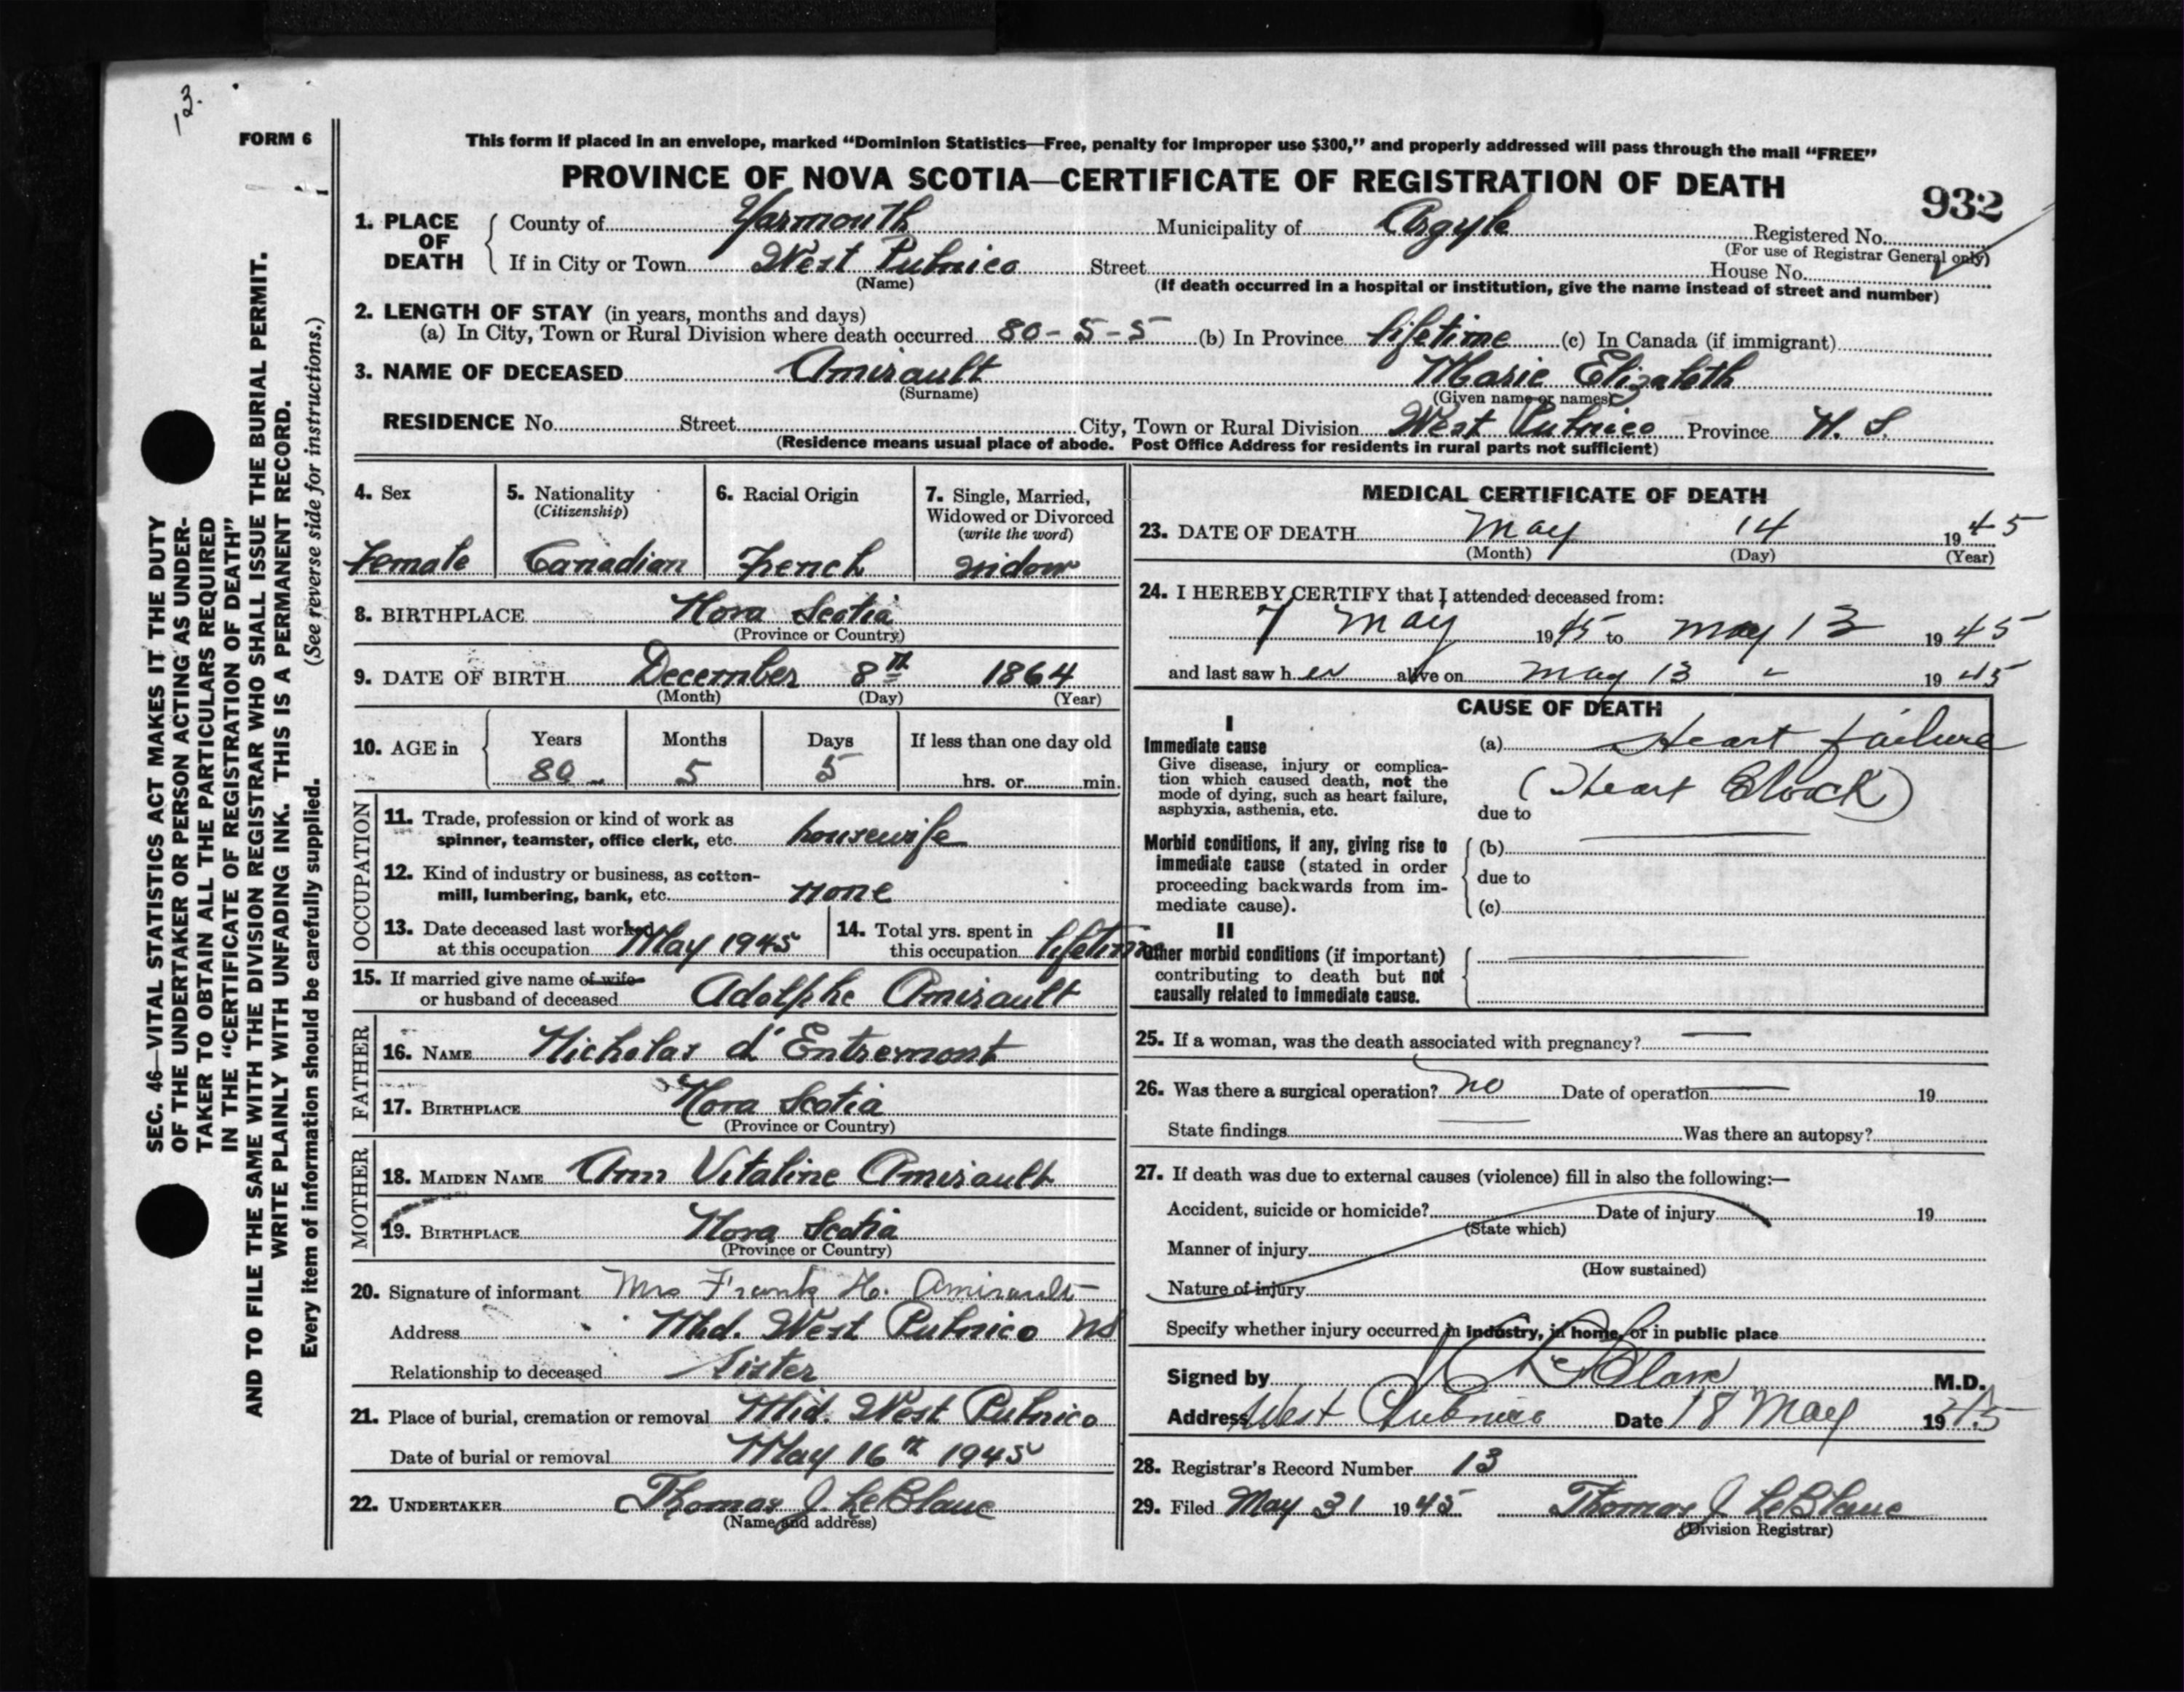 13.
FORM 6
This form if placed in an envelope, marked “Dominion Statistics—Free, penalty for improper use $300,” and properly addressed will pass through the mail “FREE”
PROVINCE OF NOVA SCOTIA—CERTIFICATE OF REGISTRATION OF DEATH
932
1. PLACE OF DEATH
County of Yarmouth Municipality of Argyle Registered No.
(For use of Registrar General only)
If in City or Town West Pubnico Street House No.
(Name) (If death occurred in a hospital or institution, give the name instead of street and number)
2. LENGTH OF STAY (in years, months and days)
(a) In City, Town or Rural Division where death occurred 80-5-5 (b) In Province lifetime (c) In Canada (if immigrant)
3. NAME OF DECEASED Amirault Marie Elizabeth
(Surname) (Given name or names)
RESIDENCE No. Street City, Town or Rural Division West Pubnico Province N. S.
(Residence means usual place of abode. Post Office Address for residents in rural parts not sufficient)
4. Sex
Female
5. Nationality
(Citizenship)
Canadian
6. Racial Origin
French
7. Single, Married,
Widowed or Divorced
(write the word)
widow
8. BIRTHPLACE Nova Scotia
(Province or Country)
9. DATE OF BIRTH December 8th 1864
(Month) (Day) (Year)
10. AGE in
Years Months Days If less than one day old
80 5 5 hrs. or min.
OCCUPATION
11. Trade, profession or kind of work as
spinner, teamster, office clerk, etc. housewife
12. Kind of industry or business, as cotton-
mill, lumbering, bank, etc. none
13. Date deceased last worked
at this occupation May 1945
14. Total yrs. spent in
this occupation lifetime
15. If married give name of wife
or husband of deceased Adolphe Amirault
FATHER
16. NAME Nicholas d'Entremont
17. BIRTHPLACE Nova Scotia
(Province or Country)
MOTHER
18. MAIDEN NAME Ann Vitaline Amirault
19. BIRTHPLACE Nova Scotia
(Province or Country)
20. Signature of informant Mrs Frank H. Amirault
Address Mid. West Pubnico NS
Relationship to deceased Sister
21. Place of burial, cremation or removal Mid. West Pubnico
Date of burial or removal May 16th 1945
22. UNDERTAKER Thomas J. LeBlanc
(Name and address)
MEDICAL CERTIFICATE OF DEATH
23. DATE OF DEATH May 14 1945
(Month) (Day) (Year)
24. I HEREBY CERTIFY that I attended deceased from:
7 May 1945 to May 13 1945
and last saw her alive on May 13 1945
CAUSE OF DEATH
I
Immediate cause
Give disease, injury or complica-
tion which caused death, not the
mode of dying, such as heart failure,
asphyxia, asthenia, etc.
(a) Heart failure
(Heart Block)
due to
Morbid conditions, if any, giving rise to
immediate cause (stated in order
proceeding backwards from im-
mediate cause).
(b)
due to
(c)
II
Other morbid conditions (if important)
contributing to death but not
causally related to immediate cause.
25. If a woman, was the death associated with pregnancy?
26. Was there a surgical operation? no Date of operation 19
State findings Was there an autopsy?
27. If death was due to external causes (violence) fill in also the following:—
Accident, suicide or homicide? Date of injury 19
(State which)
Manner of injury
(How sustained)
Nature of injury
Specify whether injury occurred in industry, in home, or in public place
Signed by LeBlanc M.D.
Address West Pubnico Date 18 May 1945
28. Registrar's Record Number 13
29. Filed May 31 1945 Thomas J. LeBlanc
(Division Registrar)
SEC. 46—VITAL STATISTICS ACT MAKES IT THE DUTY
OF THE UNDERTAKER OR PERSON ACTING AS UNDER-
TAKER TO OBTAIN ALL THE PARTICULARS REQUIRED
IN THE “CERTIFICATE OF REGISTRATION OF DEATH”
AND TO FILE THE SAME WITH THE DIVISION REGISTRAR WHO SHALL ISSUE THE BURIAL PERMIT.
WRITE PLAINLY WITH UNFADING INK. THIS IS A PERMANENT RECORD.
Every item of information should be carefully supplied. (See reverse side for instructions.)